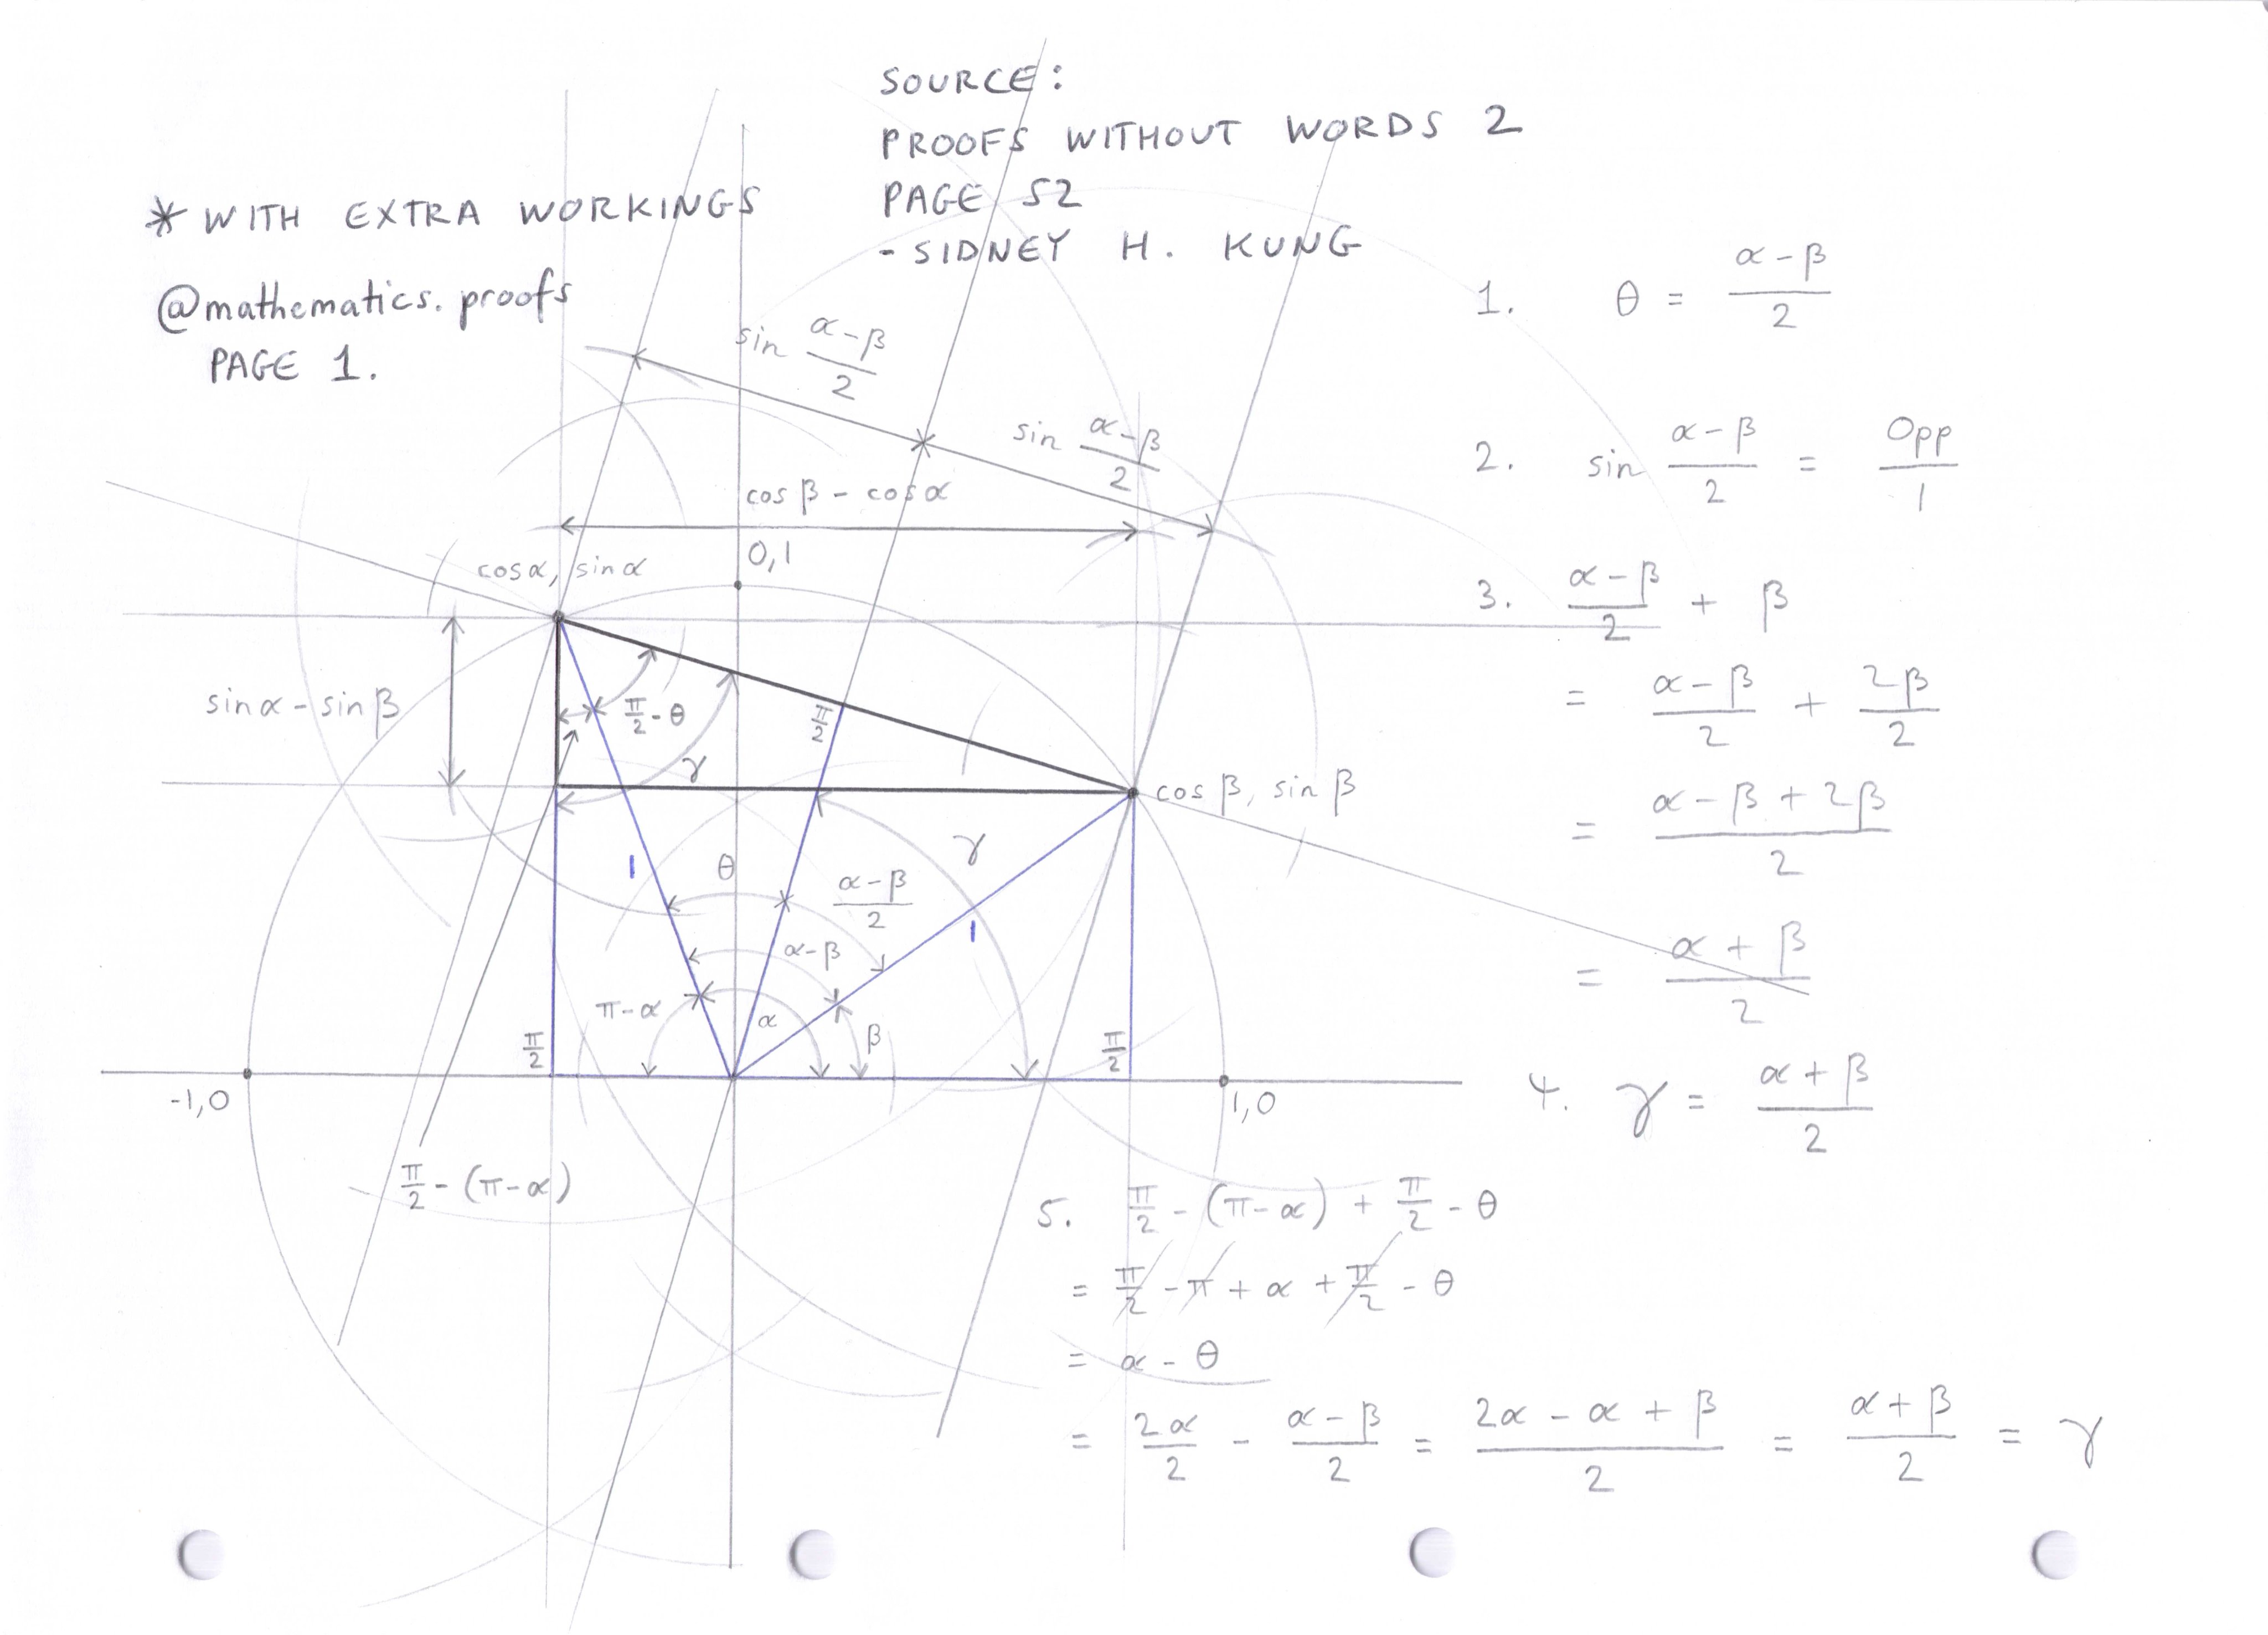 SOURCE:
PROOFS WITHOUT WORDS 2
PAGE 52
- SIDNEY H. KUNG
* WITH EXTRA WORKINGS
@mathematics.proofs
PAGE 1.
sin (α-β)/2
sin (α-β)/2
cos β - cos α
0,1
cos α, sin α
sin α - sin β
π/2 - θ
π/2
γ
cos β, sin β
1
θ
(α-β)/2
γ
1
α-β
π-α
α
β
π/2
π/2
-1,0
1,0
π/2 - (π-α)
1. θ = (α-β)/2
2. sin (α-β)/2 = Opp/1
3. (α-β)/2 + β
= (α-β)/2 + 2β/2
= (α-β+2β)/2
= (α+β)/2
4. γ = (α+β)/2
5. π/2 - (π-α) + π/2 - θ
= π/2 - π + α + π/2 - θ
= α - θ
= 2α/2 - (α-β)/2 = (2α-α+β)/2 = (α+β)/2 = γ